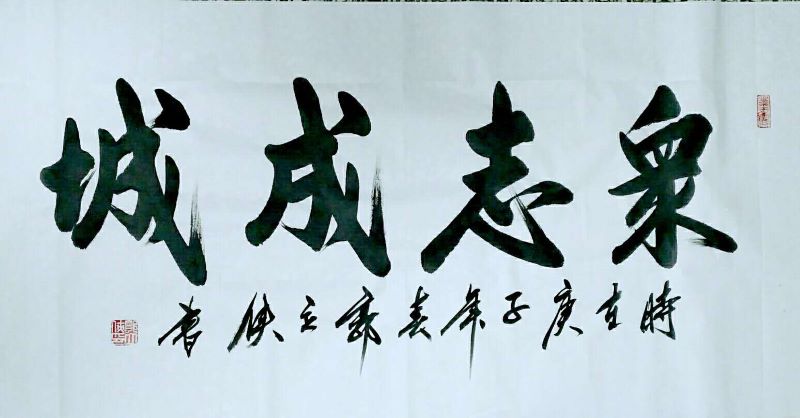 衆志成城
時在庚子年春郭立侠書